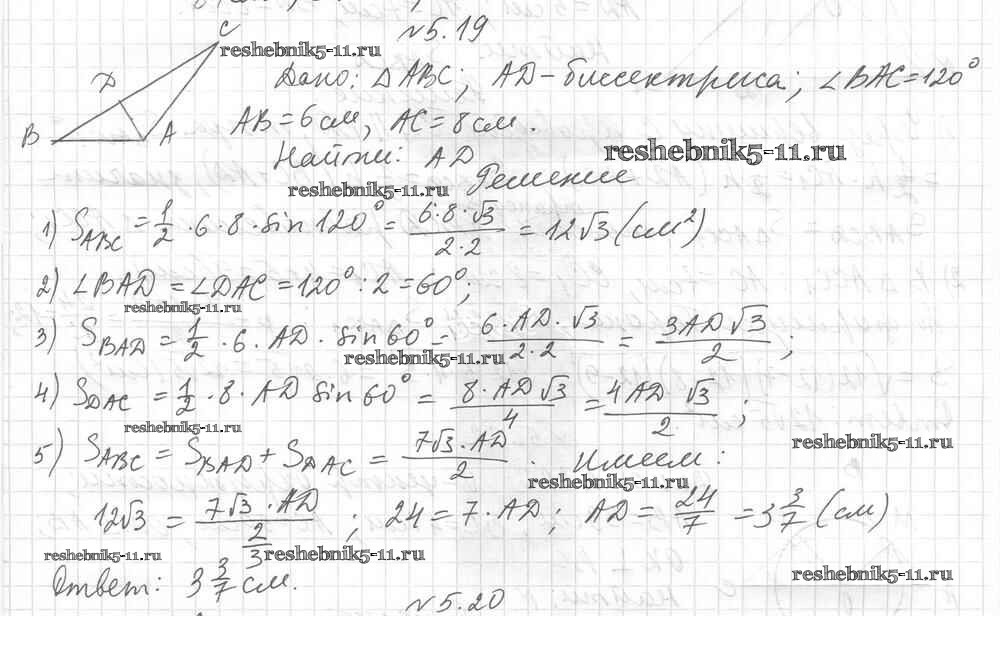 №5.19
C
D
B
A
reshebnik5-11.ru
Дано: △ABC; AD - биссектриса; ∠BAC = 120°
AB = 6 см, AC = 8 см.
reshebnik5-11.ru
Найти: AD
reshebnik5-11.ru
Решение
1) S_ABC = 1/2 · 6 · 8 · sin 120° = 6·8·√3 / 2·2 = 12√3 (см²)
2) ∠BAD = ∠DAC = 120° : 2 = 60°;
reshebnik5-11.ru
3) S_BAD = 1/2 · 6 · AD · sin 60° = 6·AD·√3 / 2·2 = 3AD√3 / 2;
reshebnik5-11.ru
4) S_DAC = 1/2 · 8 · AD sin 60° = 8·AD√3 / 4 = 4AD √3 / 2;
reshebnik5-11.ru
reshebnik5-11.ru
5) S_ABC = S_BAD + S_DAC = 7√3·AD / 2. Имеем:
reshebnik5-11.ru
12√3 = 7√3·AD / 2; 24 = 7·AD; AD = 24/7 = 3 3/7 (см)
reshebnik5-11.ru
reshebnik5-11.ru
reshebnik5-11.ru
Ответ: 3 3/7 см.
№5.20